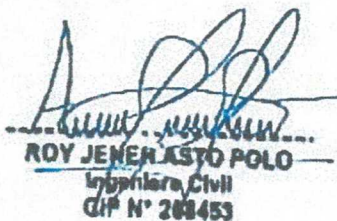 ROY JENER ASTO POLO
Ingeniero Civil
CIP N°